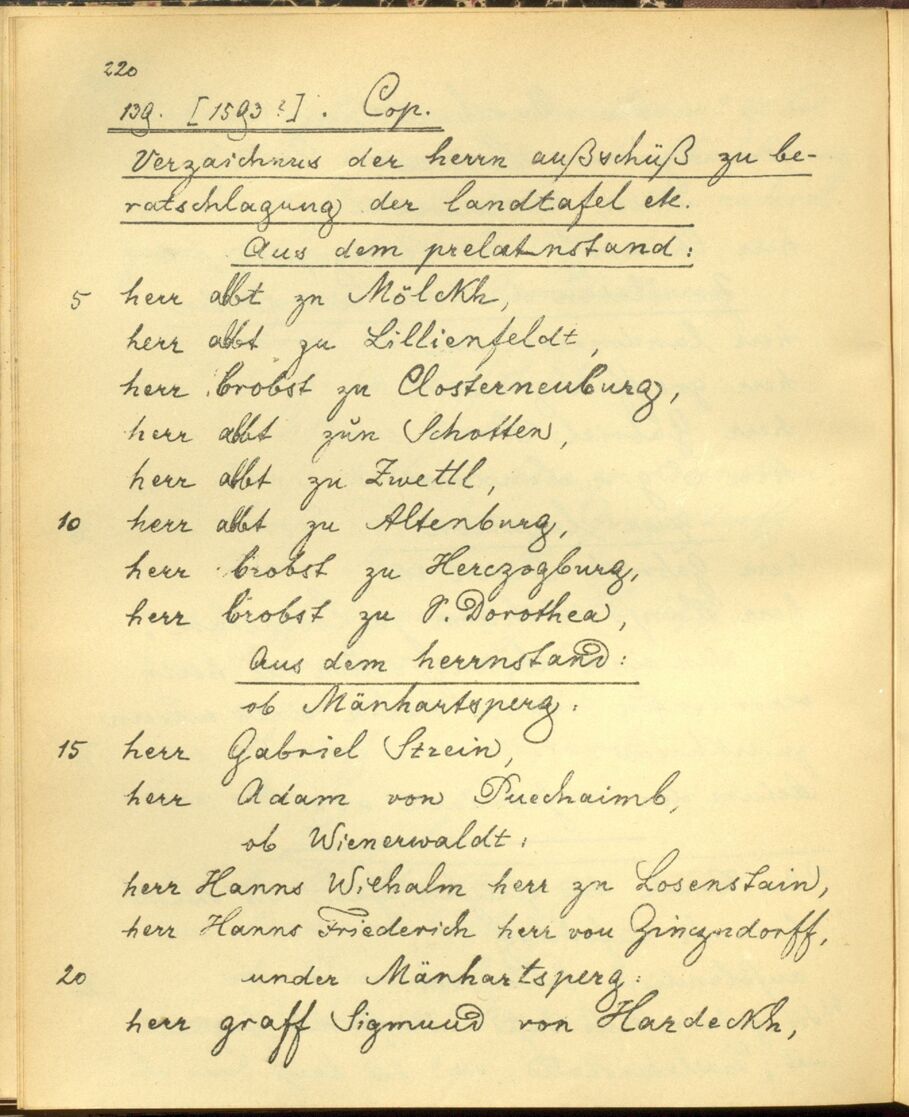 220
139. [1593?]. Cop.
Verzaichnus der herrn außschüß zu be-
ratschlagung der landtafel etc.
Aus dem prelatnstand:
5 herr abbt zu Mölckh,
herr abbt zu Lillienfeldt,
herr brobst zu Closterneuburg,
herr abbt zun Schotten,
herr abbt zu Zwettl,
10 herr abbt zu Altenburg,
herr brobst zu Herczogburg,
herr brobst zu S. Dorothea,
Aus dem herrnstand:
ob Mänhartsperg:
15 herr Gabriel Strein,
herr Adam von Puechaimb,
ob Wienerwaldt:
herr Hanns Wilhalm herr zu Losenstain,
herr Hanns Friederich herr von Zinczndorff,
20 under Mänhartsperg:
herr graff Sigmund von Hardeckh,